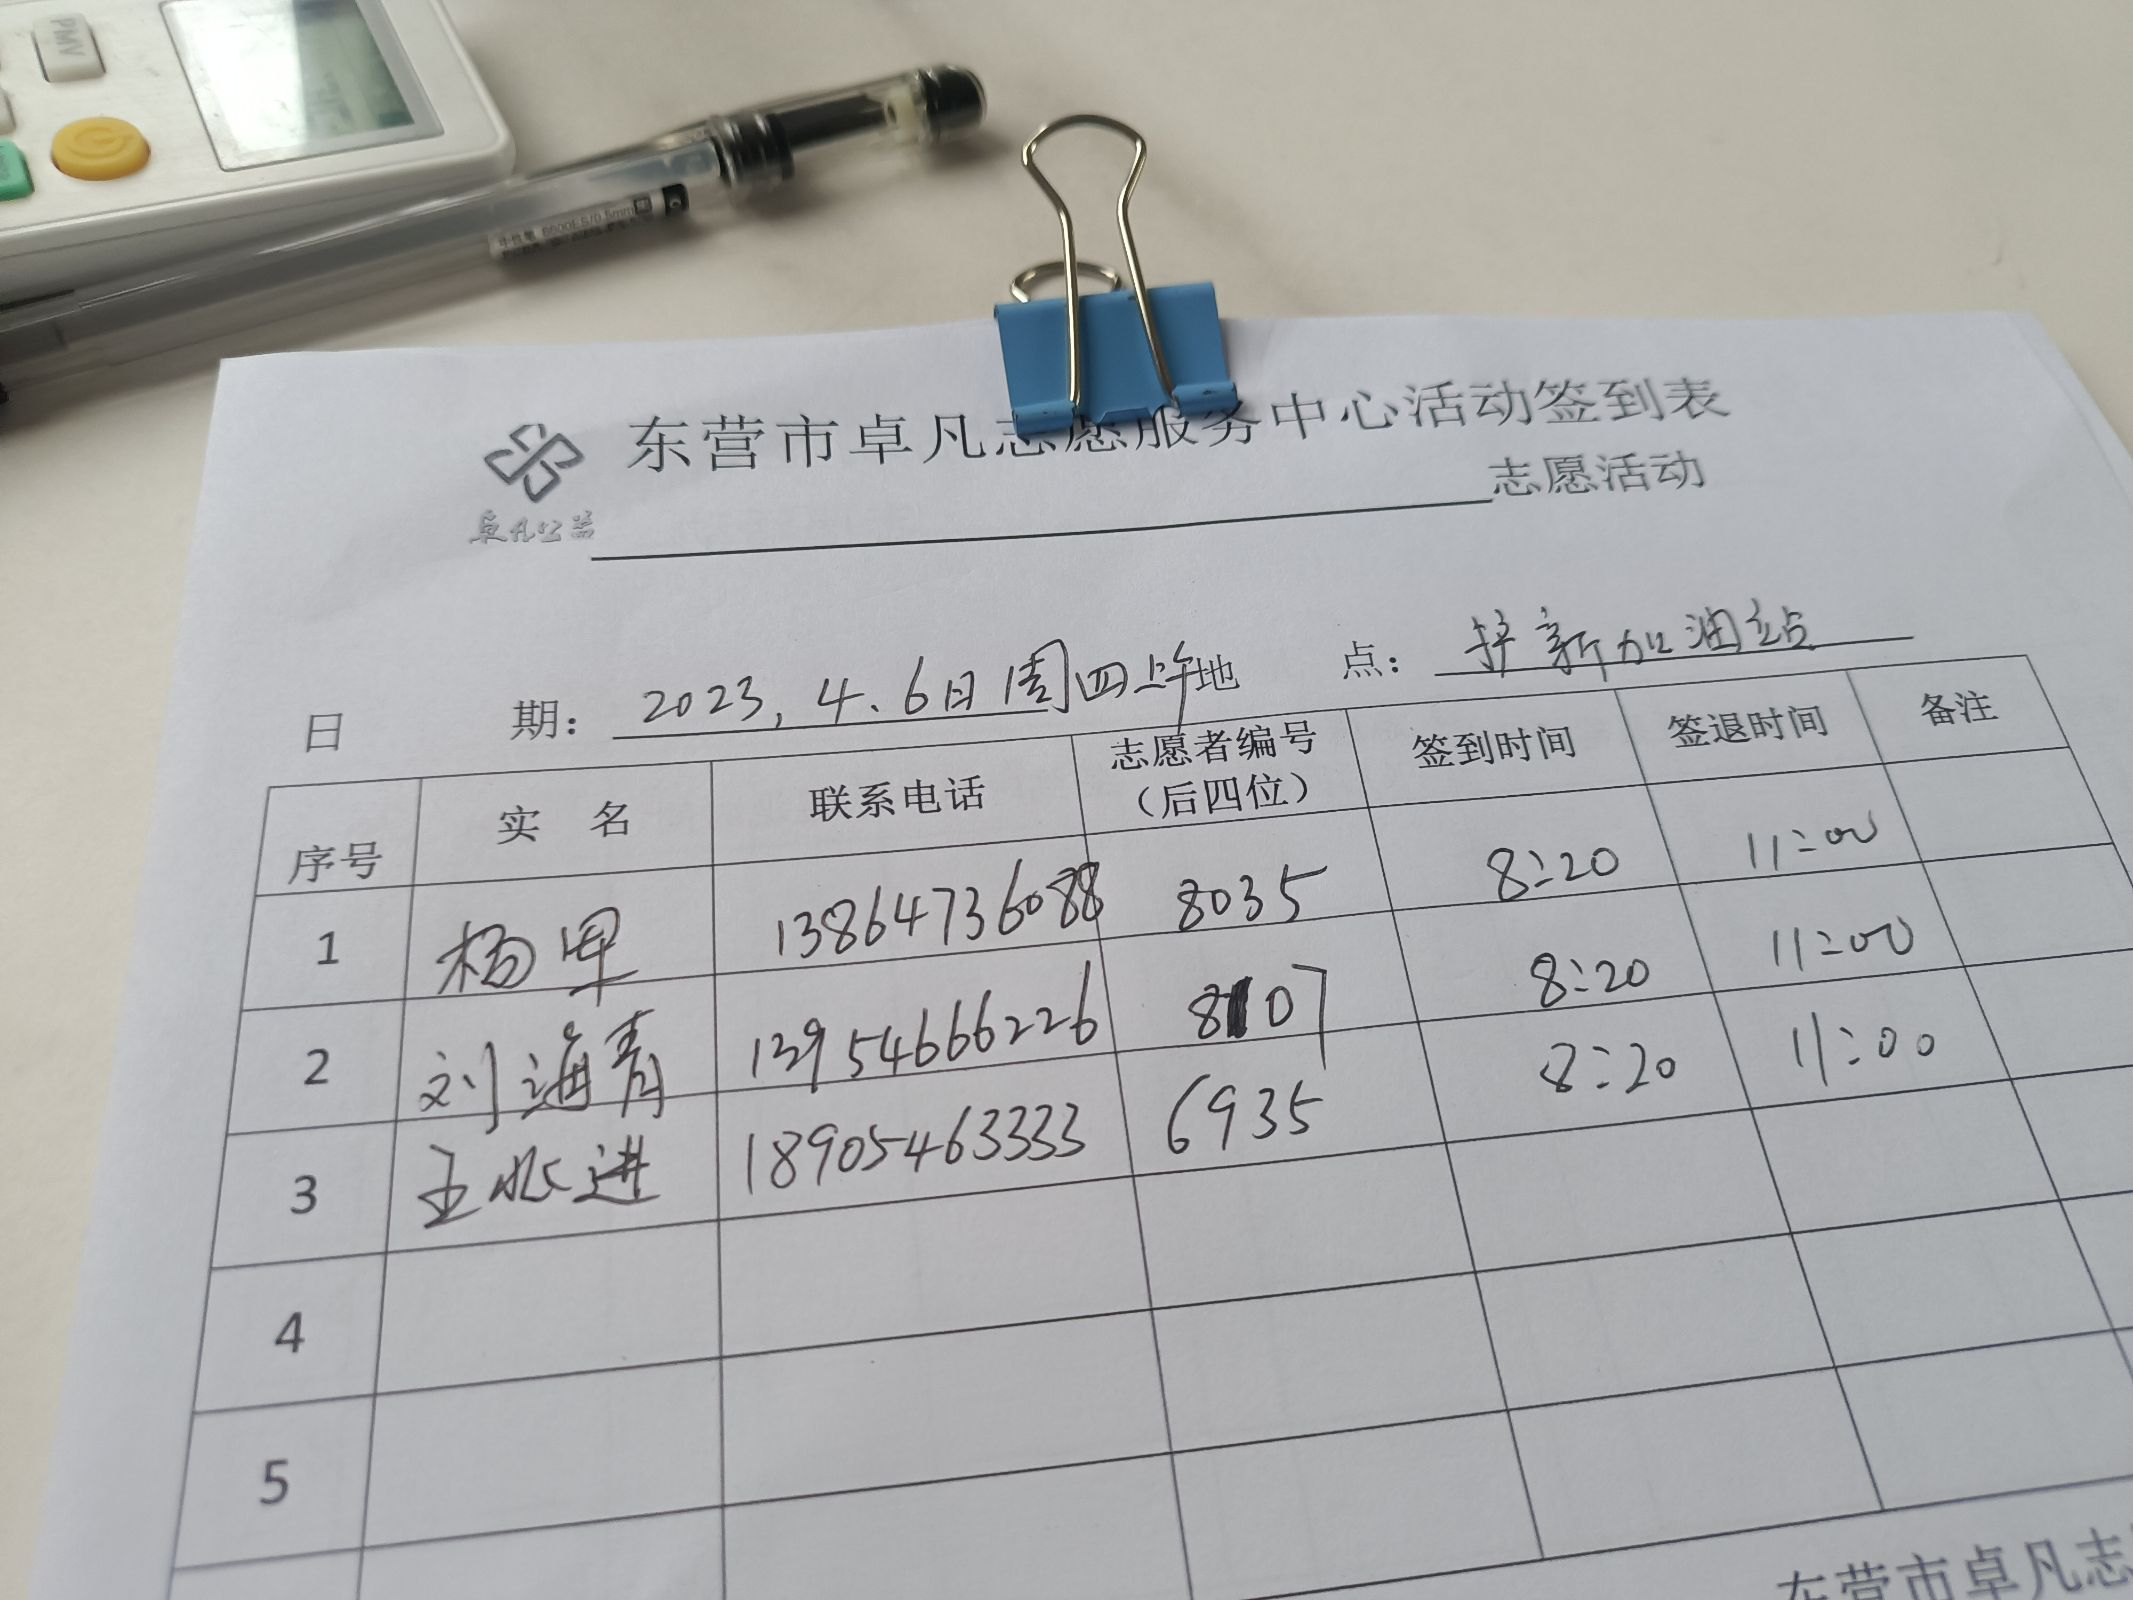 PMV
G
中性笔 6600ES/0.5mm
东营市卓凡志愿服务中心活动签到表
卓凡公益
志愿活动
日 期： 2023, 4. 6日 周四上午 地 点： 新加油站
序号 实 名 联系电话 志愿者编号（后四位） 签到时间 签退时间 备注
1 杨军 13864736088 8035 8:20 11:00
2 刘海青 13954666226 8107 8:20 11:00
3 王 进 18905463333 6935 8:20 11:00
4
5
东营市卓凡志